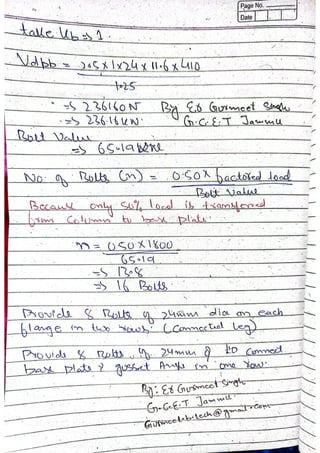 Page No.
Date
take Kb => 1.
Vdpb = 2.5x1x24x11.6x410
1.25
=> 236160N By Er Gurmeet Singh
=> 236.16KN. G.C.E.T Jammu
Bolt Value
=> 65.19
No. of Bolts (n) = 0.50 x factored load
Bolt Value
Because only 50% load is transferred
from Column to base plate.
n = 0.50x1800
65.19
=> 13.8
=> 16 Bolts.
Provide 8 Bolts of 24mm dia on each
flange in two rows. (Connected leg)
Provide 8 Bolts of 24mm ф to connect
base plate & gusset Angle in one row.
By: Er Gurmeet Singh
G.C.E.T Jammu
Gurmeet.b.tech@gmail.com